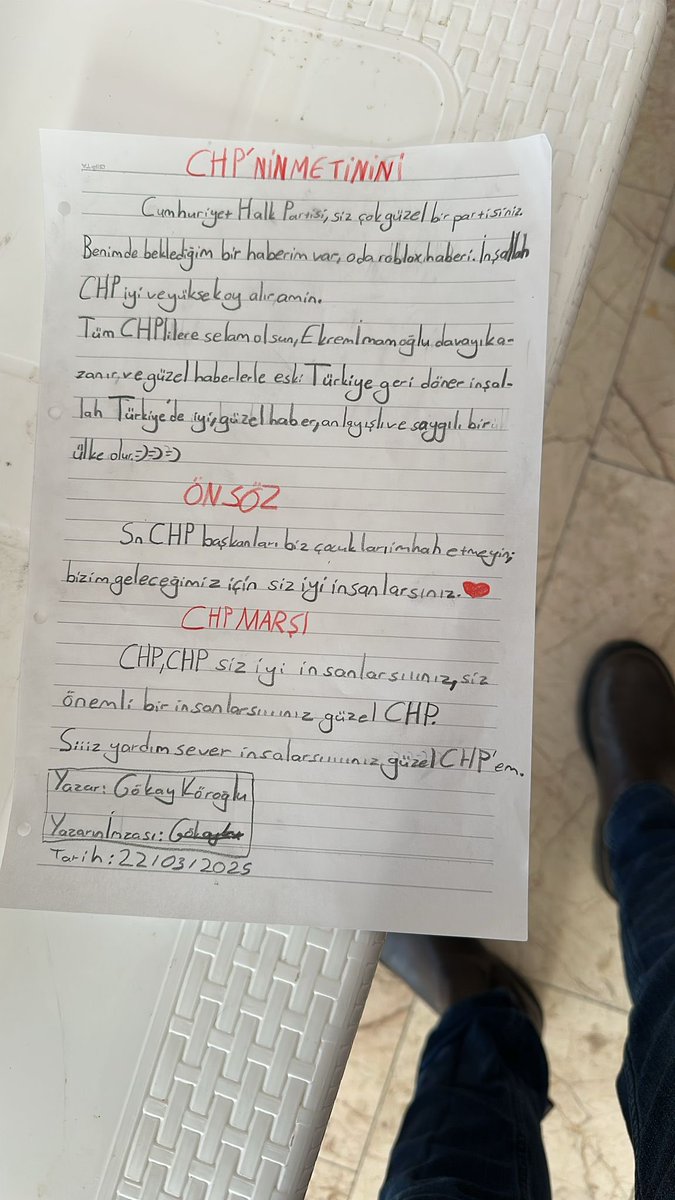 CHP'NİN METİNİNİ
Cumhuriyet Halk Partisi, siz çok güzel bir partisiniz.
Benimde beklediğim bir haberim var, oda roblox haberi. İnşallah
CHP iyi ve yüksek oy alır, amin.
Tüm CHP'lilere selam olsun, Ekrem İmamoğlu davayı ka-
zanır, ve güzel haberlerle eski Türkiye geri döner inşal-
lah Türkiye'de iyi, güzel haber, anlayışlı ve saygılı bir
ülke olur. =) =) =)
ÖN SÖZ
Sn CHP başkanları biz çocukları imhah etmeyin;
bizim geleceğimiz için siz iyi insanlarsınız. ❤
CHP MARŞI
CHP, CHP siz iyi insanlarsııınız, siz
önemli bir insanlarsıııııınız güzel CHP.
Siiiz yardım sever insalarsıııııınız, güzel CHP'em.
Yazar: Gökay Köroğlu
Yazarın İmzası:
Tarih: 22/03/2025